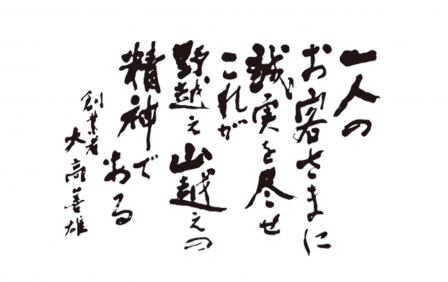 一人の
お客さまに
誠実を尽せ
これが
野越え山越えの
精神で
ある
創業者
大高善雄